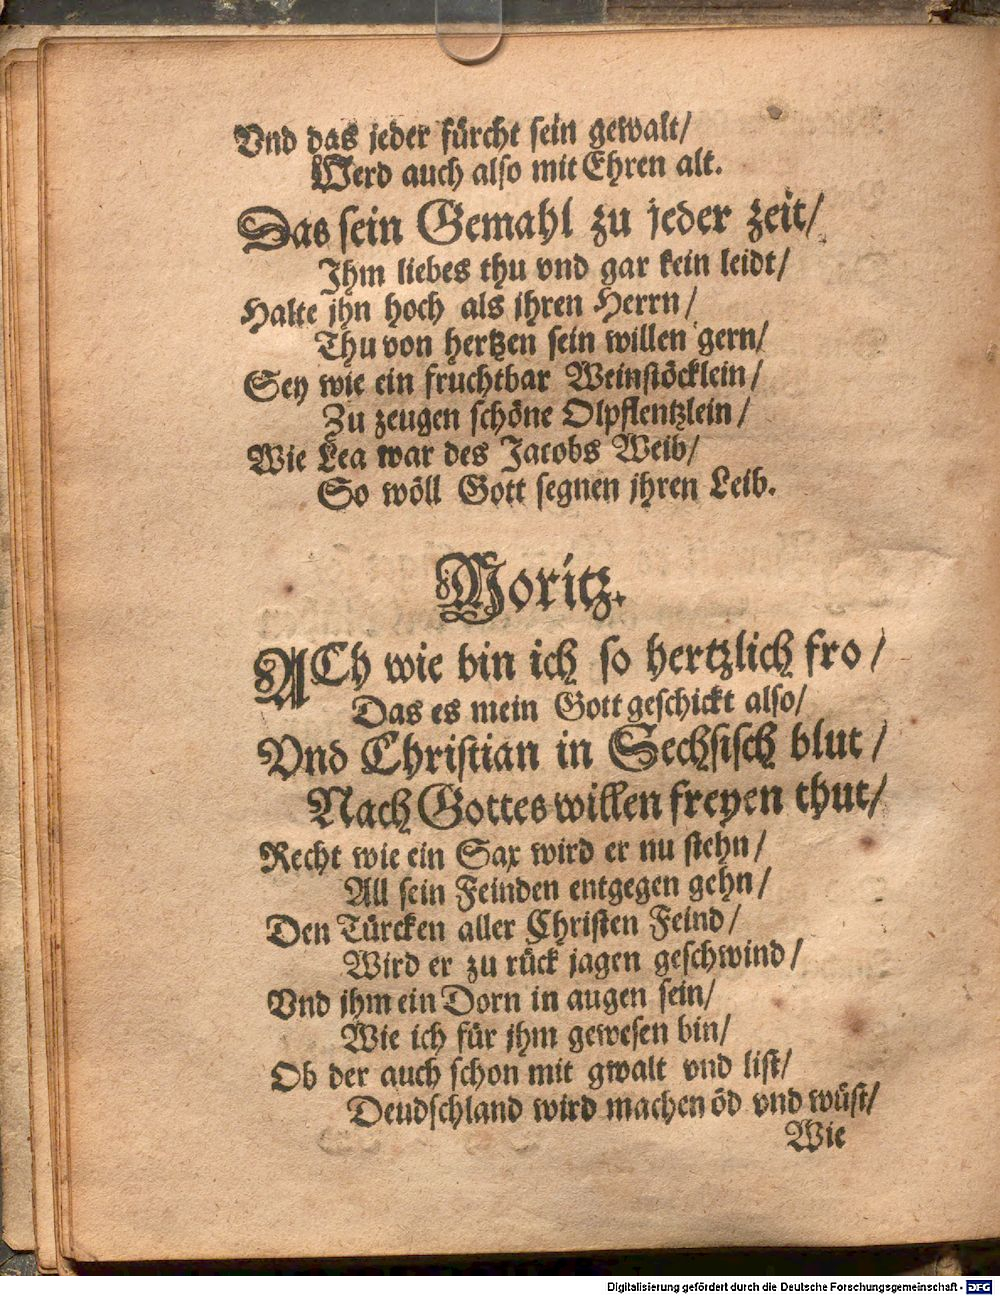 Vnd das jeder fürcht sein gewalt/
Werd auch also mit Ehren alt.
Das sein Gemahl zu jeder zeit/
Ihm liebes thu vnd gar kein leidt/
Halte jhn hoch als jhren Herrn/
Thu von hertzen sein willen gern/
Sey wie ein fruchtbar Weinstöcklein/
Zu zeugen schöne Olpflentzlein/
Wie Lea war des Jacobs Weib/
So wöll Gott segnen jhren Leib.
Moritz.
ACh wie bin ich so hertzlich fro/
Das es mein Gott geschickt also/
Vnd Christian in Sechsisch blut/
Nach Gottes willen freyen thut/
Recht wie ein Sax wird er nu stehn/
All sein Feinden entgegen gehn/
Den Türcken aller Christen Feind/
Wird er zu rück jagen geschwind/
Vnd jhm ein Dorn in augen sein/
Wie ich für jhm gewesen bin/
Ob der auch schon mit gwalt vnd list/
Deudschland wird machen öd vnd wüst/
Wie
Digitalisierung gefördert durch die Deutsche Forschungsgemeinschaft - DFG